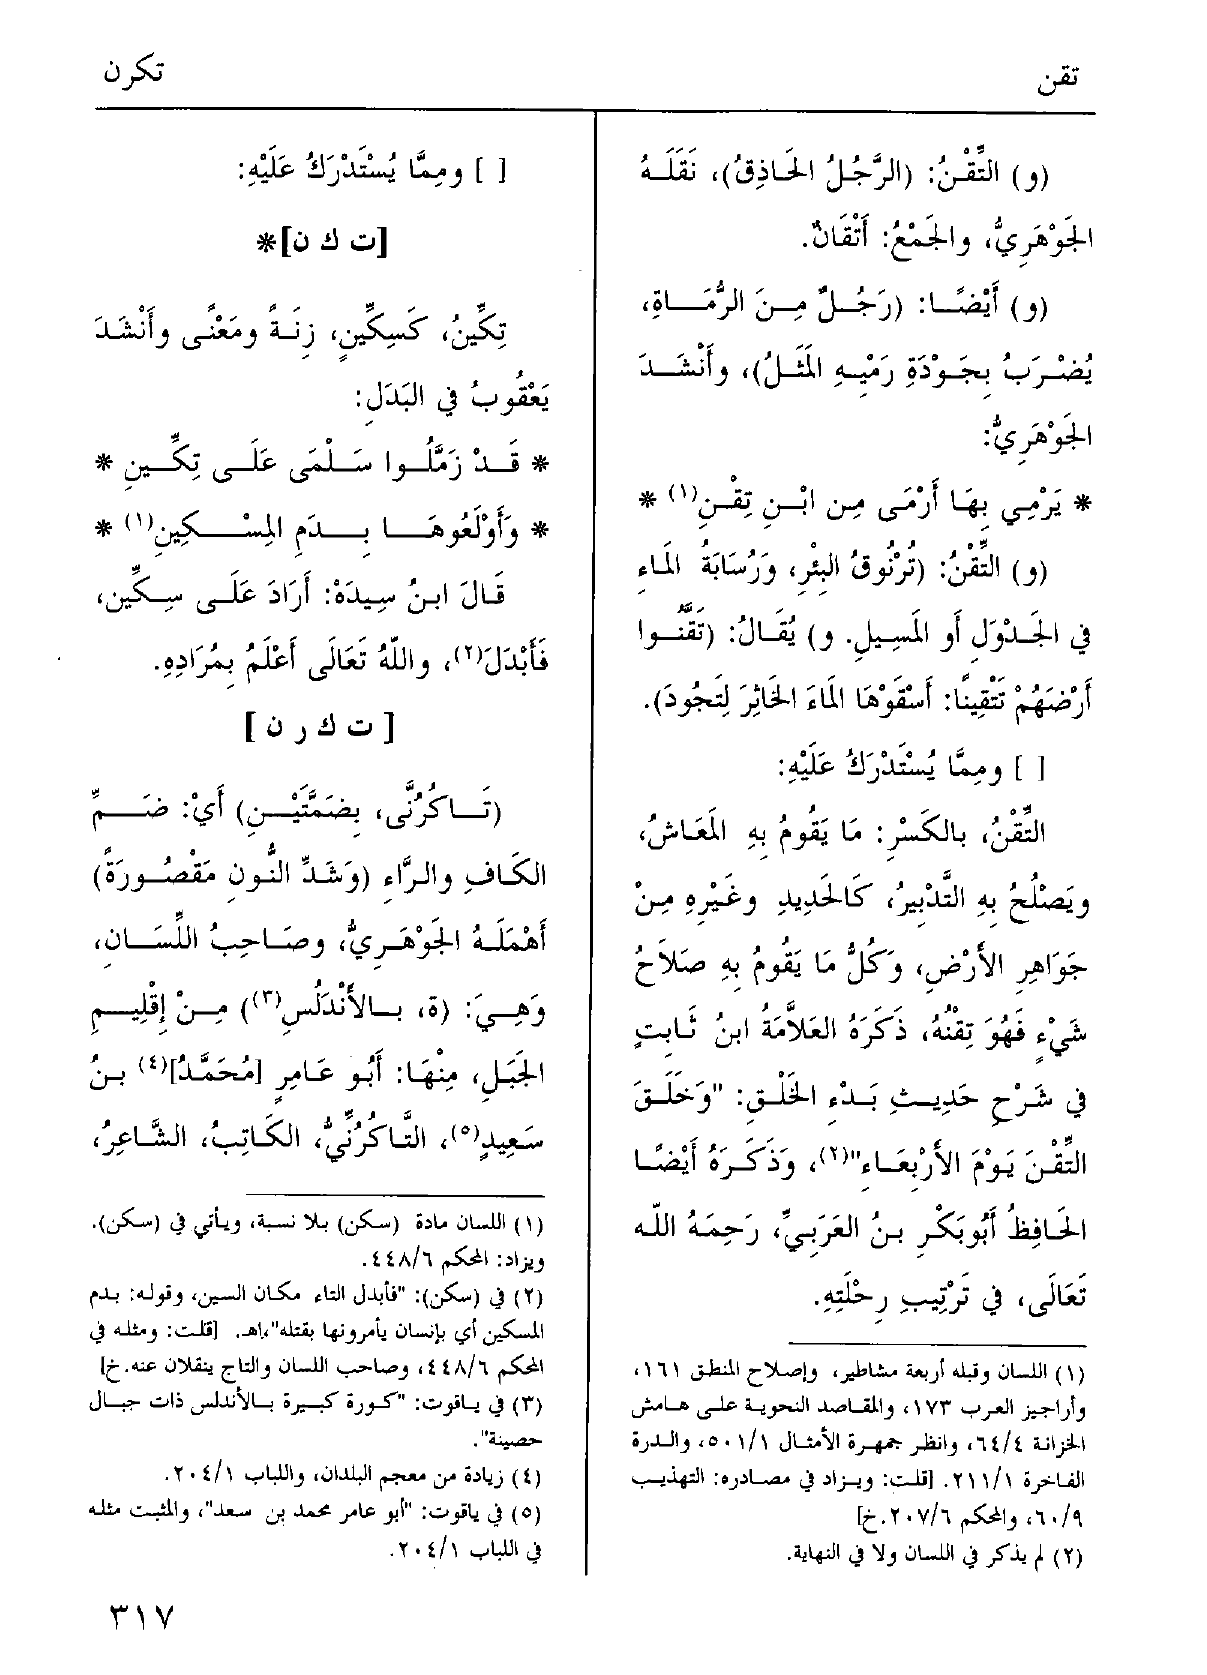 تقن
تكرن
(و) التِّقْنُ: (الرَّجُلُ الحَاذِقُ)، نَقَلَهُ
الجَوْهَرِيُّ، والجَمْعُ: أَتْقَانٌ.
(و) أَيْضًا: (رَجُلٌ مِنَ الرُّمَاةِ،
يُضْرَبُ بِجَوْدَةِ رَمْيِهِ المَثَلُ)، وأَنْشَدَ
الجَوْهَرِيُّ:
* يَرْمِي بِهَا أَرْمَى مِن ابْنِ تِقْنِ(١) *
(و) التِّقْنُ: (تُرْنُوقُ البِئْرِ، وَرُسَابَةُ المَاءِ
فِي الجَدْوَلِ أَو المَسِيلِ. و) يُقَالُ: (تَقَّنُوا
أَرْضَهُمْ تَتْقِينًا: أَسْقَوْهَا المَاءَ الخَاثِرَ لِتَجُودَ).
[ ] ومِمَّا يُسْتَدْرَكُ عَلَيْهِ:
التِّقْنُ، بالكَسْرِ: مَا يَقُومُ بِهِ المَعَاشُ،
ويَصْلُحُ بِهِ التَّدْبِيرُ، كَالحَدِيدِ وغَيْرِهِ مِنْ
جَوَاهِرِ الأَرْضِ، وَكُلُّ مَا يَقُومُ بِهِ صَلَاحُ
شَيْءٍ فَهُوَ تِقْنُهُ، ذَكَرَهُ العَلَّامَةُ ابنُ ثَابِتٍ
فِي شَرْحِ حَدِيثِ بَدْءِ الخَلْقِ: "وَخَلَقَ
التِّقْنَ يَوْمَ الأَرْبِعَاءِ"(٢)، وَذَكَرَهُ أَيْضًا
الحَافِظُ أَبُوبَكْرِ بنُ العَرَبِيِّ، رَحِمَهُ اللّه
تَعَالَى، فِي تَرْتِيبِ رِحْلَتِهِ.
(١) اللسان وقبله أربعة مشاطير، وإصلاح المنطق ١٦١،
وأراجيز العرب ١٧٣، والمقاصد النحوية على هامش
الخزانة ٦٤/٤، وانظر جمهرة الأمثال ٥٠١/١، والدرة
الفاخرة ٢١١/١. [قلت: ويزاد في مصادره: التهذيب
٦٠/٩، والمحكم ٢٠٧/٦.خ]
(٢) لم يذكر في اللسان ولا في النهاية.
[ ] ومِمَّا يُسْتَدْرَكُ عَلَيْهِ:
[ت ك ن]*
تِكِّينُ، كَسِكِّينٍ، زِنَةً ومَعْنًى وأَنْشَدَ
يَعْقُوبُ فِي البَدَلِ:
* قَدْ زَمَّلُوا سَلْمَى عَلَى تِكِّينِ *
* وَأَوْلَعُوهَا بِدَمِ المِسْكِينِ(١) *
قَالَ ابنُ سِيدَهْ: أَرَادَ عَلَى سِكِّين،
فَأَبْدَلَ(٢)، واللهُ تَعَالَى أَعْلَمُ بِمُرَادِهِ.
[ ت ك ر ن ]
(تَاكُرُنَّى، بِضَمَّتَيْنِ) أَيْ: ضَمِّ
الكَافِ والرَّاءِ (وَشَدِّ النُّونِ مَقْصُورَةً)
أَهْمَلَهُ الجَوْهَرِيُّ، وصَاحِبُ اللِّسَانِ،
وَهِيَ: (ة، بالأَنْدَلُسِ(٣)) مِنْ إِقْلِيمِ
الجَبَلِ، مِنْهَا: أَبُو عَامِرٍ [مُحَمَّدُ](٤) بنُ
سَعِيدٍ(٥)، التَّاكُرُنِّيُّ، الكَاتِبُ، الشَّاعِرُ،
(١) اللسان مادة (سكن) بلا نسبة، ويأتي في (سكن).
ويزاد: المحكم ٤٤٨/٦.
(٢) في (سكن): "فأبدل التاء مكان السين، وقوله: بدم
المسكين أي بإنسان يأمرونها بقتله"،اهـ. [قلت: ومثله في
المحكم ٤٤٨/٦، وصاحب اللسان والتاج ينقلان عنه.خ]
(٣) في ياقوت: "كورة كبيرة بالأندلس ذات جبال
حصينة".
(٤) زيادة من معجم البلدان، واللباب ٢٠٤/١.
(٥) في ياقوت: "أبو عامر محمد بن سعد"، والمثبت مثله
في اللباب ٢٠٤/١.
٣١٧